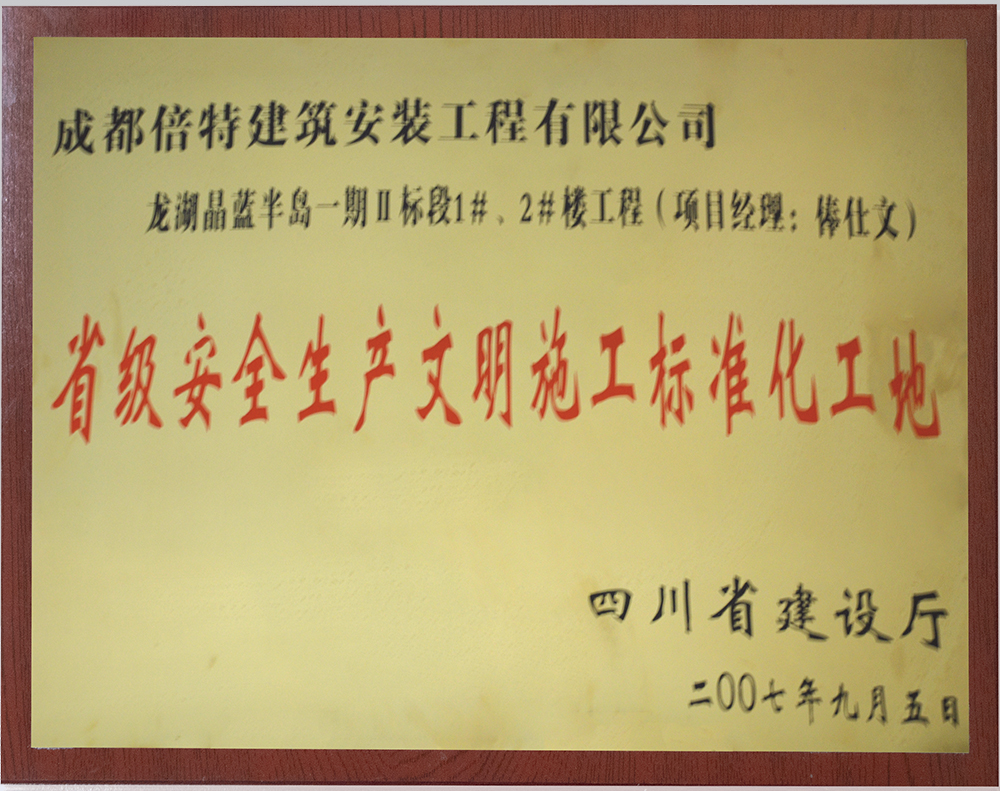 成都倍特建筑安装工程有限公司
龙湖晶蓝半岛一期Ⅱ标段1#、2#楼工程(项目经理：俸仕文)
省级安全生产文明施工标准化工地
四川省建设厅
二00七年九月五日